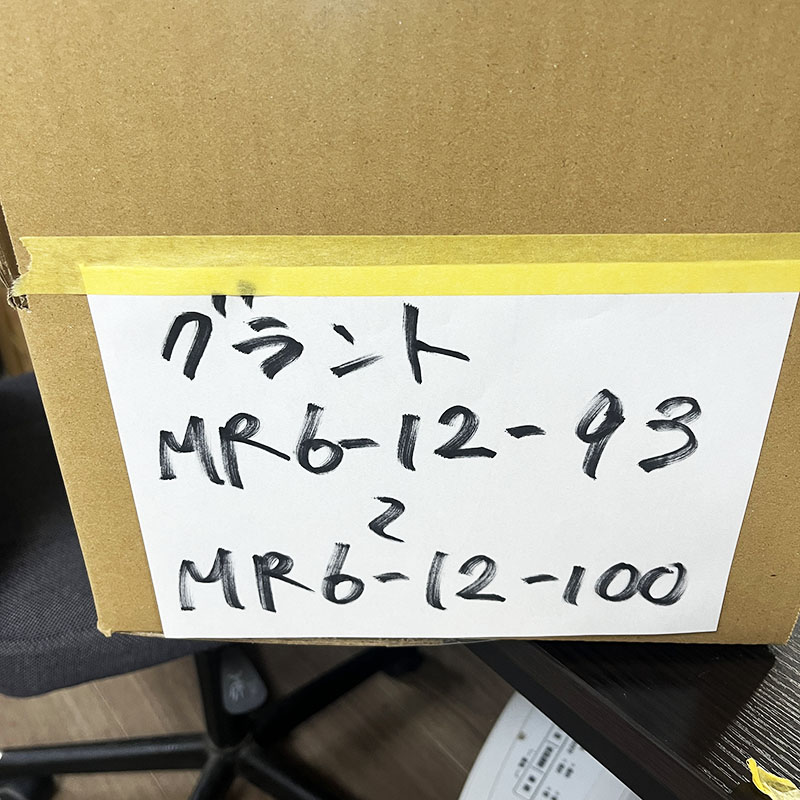 グラント
MR6-12-93
〜
MR6-12-100